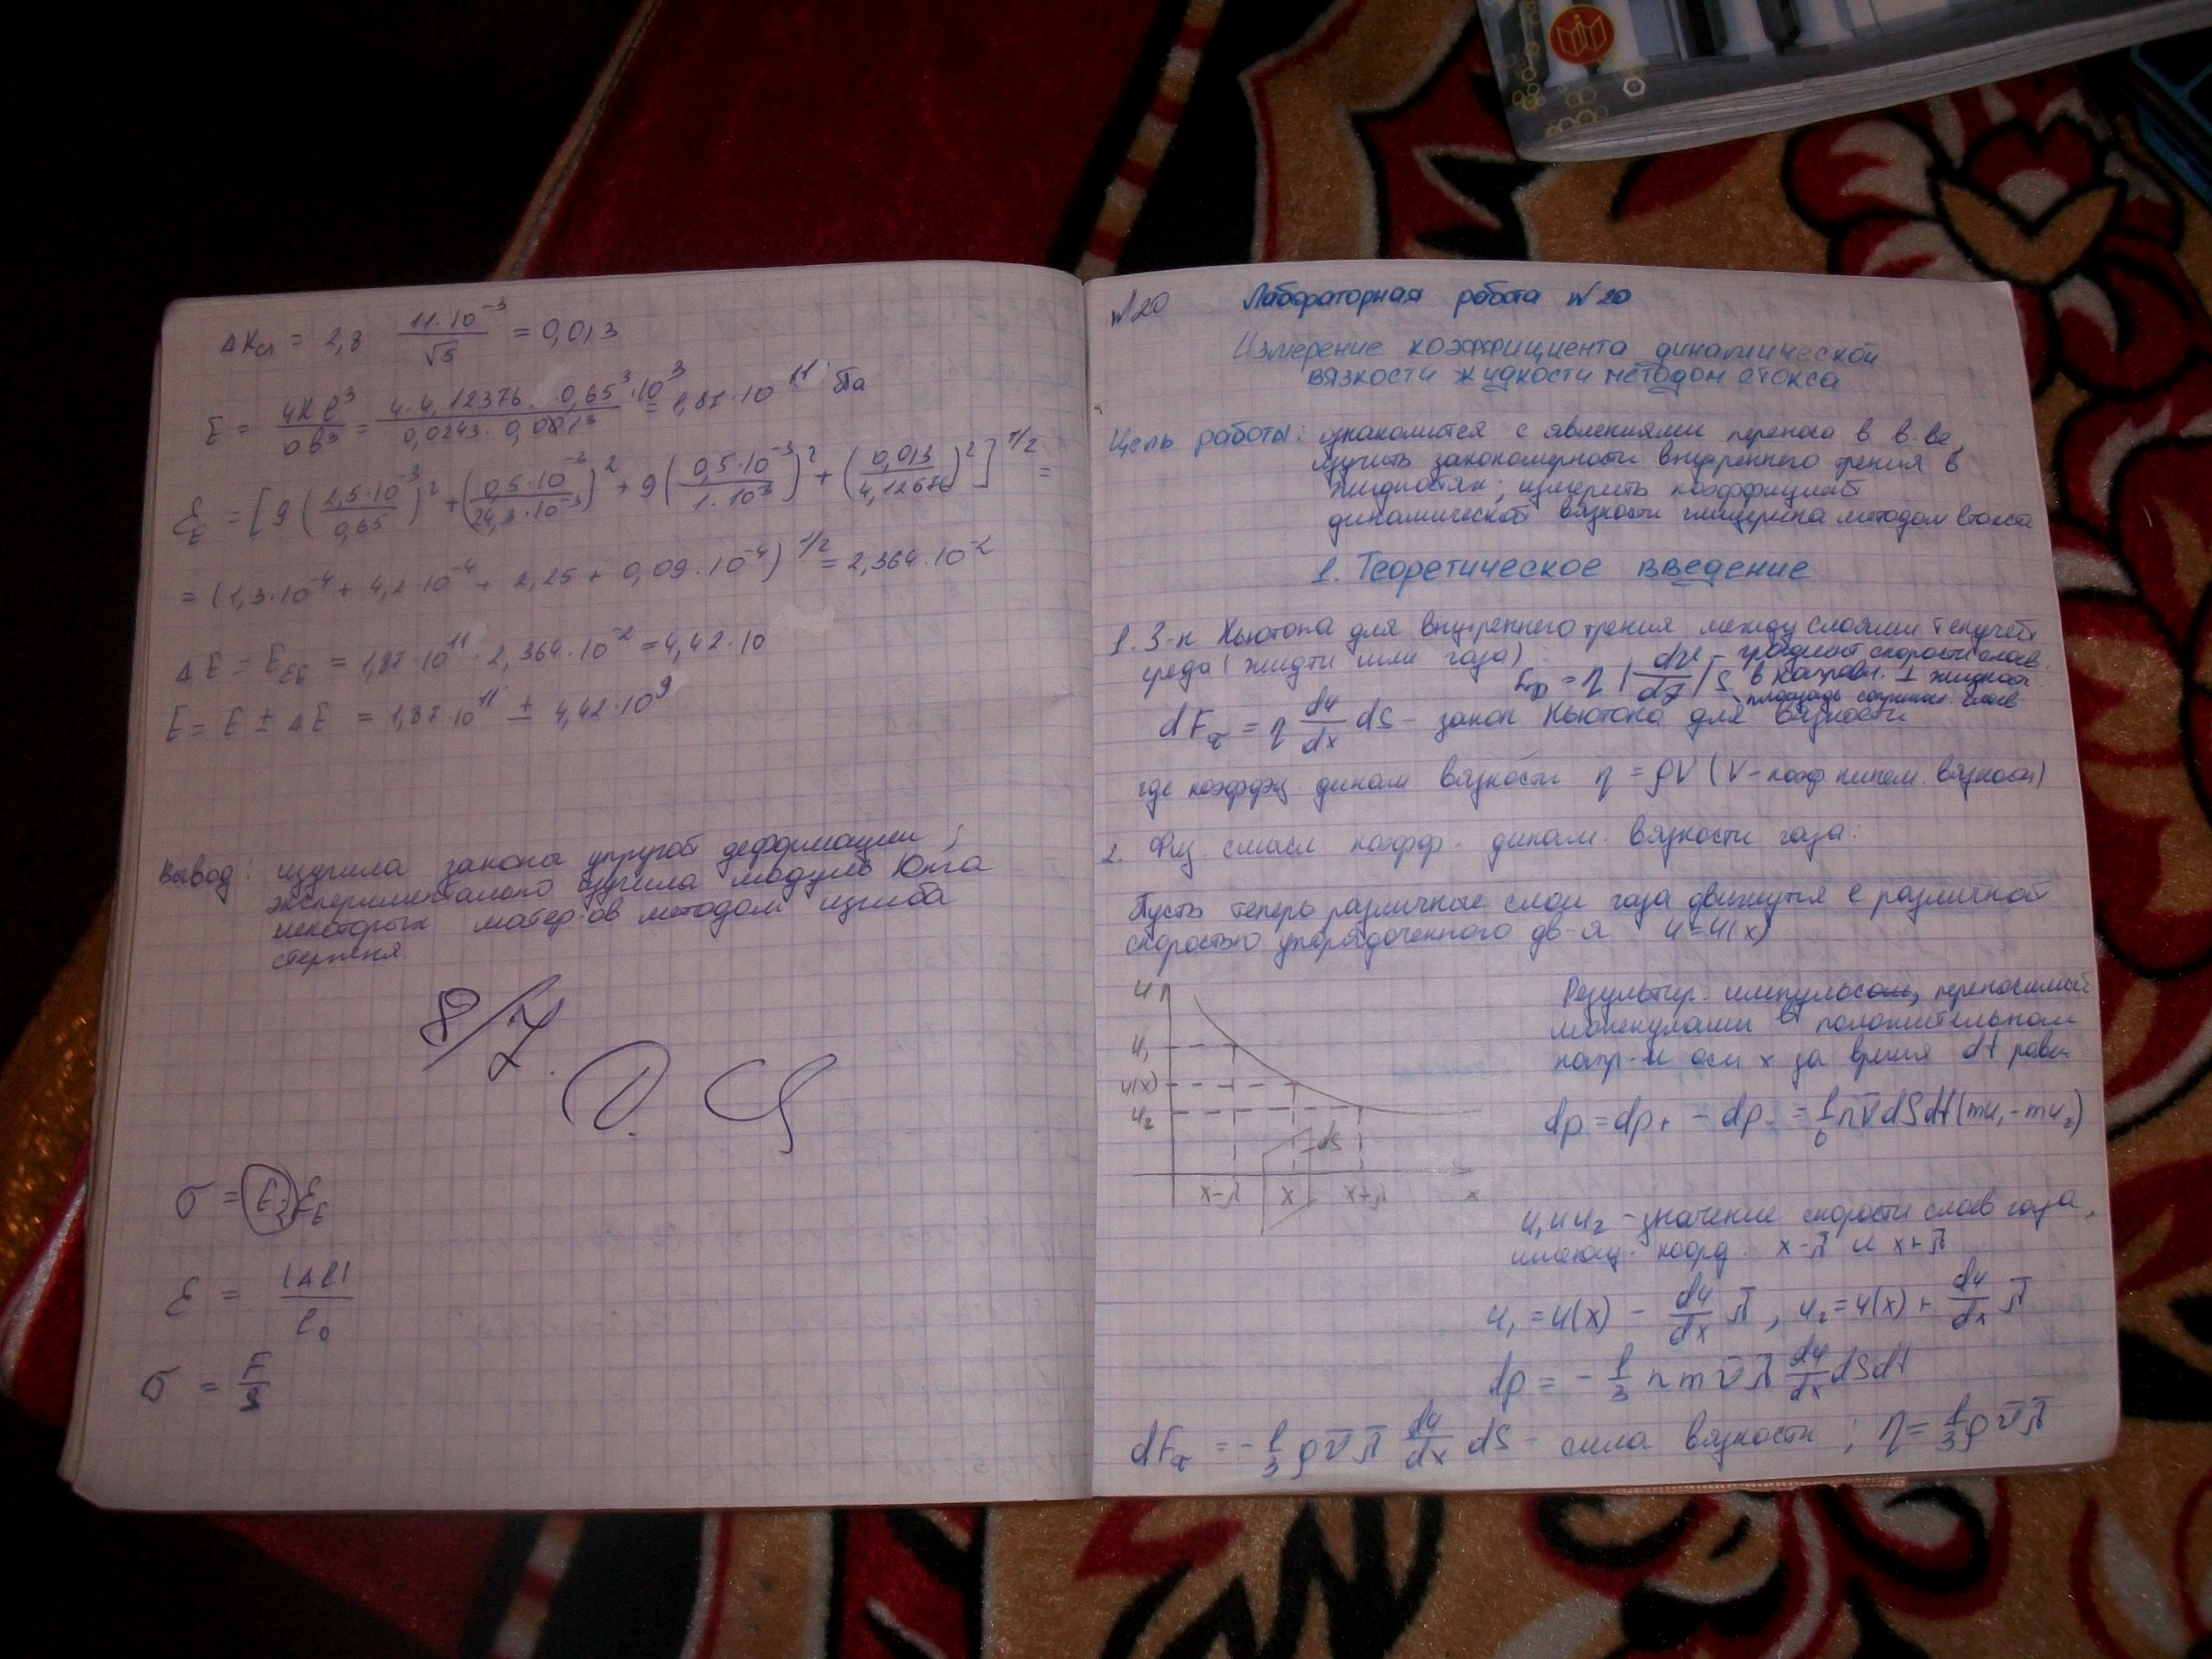 ΔKсл = 2,8 11·10⁻³/√5 = 0,013
E = 4Kl³/ab³ = 4·4,12376·0,65³·10³/0,0243·0,001³ = 1,87·10¹¹ Па
ε_E = [9(2,5·10⁻³/0,65)² + (0,5·10⁻³/24,3·10⁻³)² + 9(0,5·10⁻³/1·10³)² + (0,013/4,12676)²]^1/2 =
= (1,3·10⁻⁴ + 4,2·10⁻⁴ + 2,25 + 0,09·10⁻⁴)^1/2 = 2,364·10⁻²
ΔE = Eε_E = 1,87·10¹¹·2,364·10⁻² = 4,42·10
E = E ± ΔE = 1,87·10¹¹ ± 4,42·10⁹
Вывод: изучила закона упругой деформации;
экспериментально изучила модуль Юнга
некоторых матер-ов методом изгиба
стержня.
σ = E ε
ε = |Δl|/l₀
σ = F/S
№20 Лабораторная работа №20
Измерение коэффициента динамической
вязкости жидкости методом Стокса
Цель работы: ознакомится с явлениями переноса в в-ве,
изучить закономерности внутреннего трения в
жидкостях; измерить коэффициент
динамической вязкости глицерина методом Стокса
1. Теоретическое введение
1. З-н Ньютона для внутреннего трения между слоями текучей
среда (жидти или газа)
Fтр = η |dv/dz| S
- градиент скорости слоев
в направл. ⊥ жидкост
площадь соприкос. слоев
dFτ = η du/dx dS - закон Ньютона для вязкости
где коэффц динам вязкости η = ρν (ν - коэф. кинем. вязкости)
2. Физ. смысл коэфф. динам. вязкости газа:
Пусть теперь различные слои газа движутся с различной
скоростью упорядоченного дв-я u=u(x)
Результир. импульсом, переносимый
молекулами в положительном
напр-и оси x за время dt равен
dp = dp₊ - dp₋ = 1/6 nv̄dSdt(mu₁-mu₂)
u
u₁
u(x)
u₂
dS
x-λ̄ x x+λ̄ x
u₁ и u₂ - значение скорости слоев газа,
имеющ. коорд. x-λ̄ и x+λ̄
u₁ = u(x) - du/dx λ̄, u₂ = u(x) + du/dx λ̄
dp = - 1/3 nmv̄λ̄ du/dx dSdt
dFτ = - 1/3 ρv̄λ̄ du/dx dS - сила вязкости; η = 1/3 ρv̄λ̄